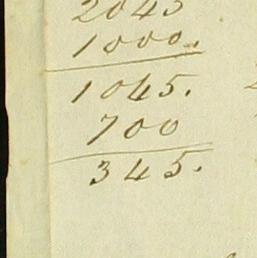 2045
1000.
1045.
700
345.